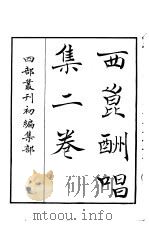 西崑酬唱
集二卷
四部叢刊初編集部
mtoou.info